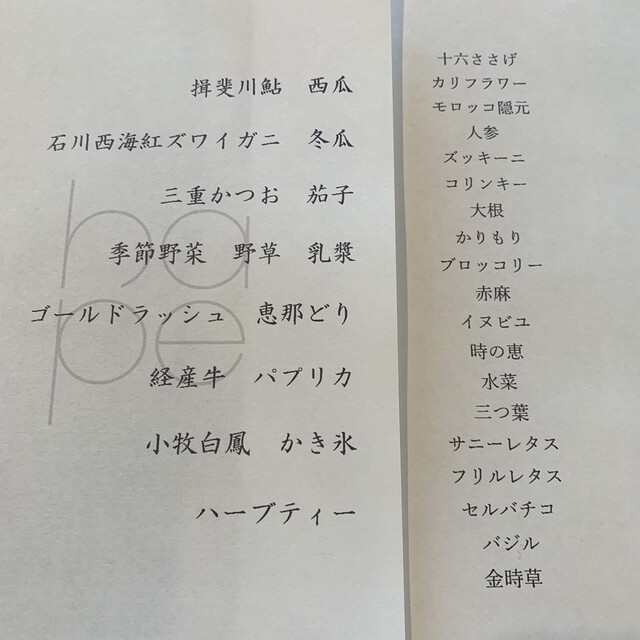 揖斐川鮎　西瓜
石川西海紅ズワイガニ　冬瓜
三重かつお　茄子
季節野菜　野草　乳漿
ゴールドラッシュ　恵那どり
経産牛　パプリカ
小牧白鳳　かき氷
ハーブティー
ha
pe
十六ささげ
カリフラワー
モロッコ隠元
人参
ズッキーニ
コリンキー
大根
かりもり
ブロッコリー
赤麻
イヌビユ
時の恵
水菜
三つ葉
サニーレタス
フリルレタス
セルバチコ
バジル
金時草